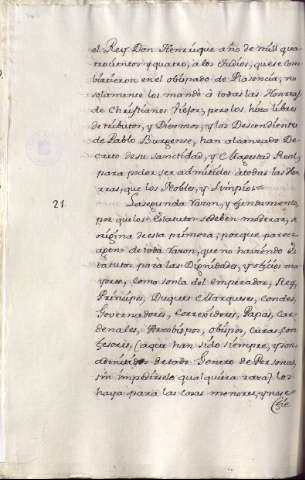 el Rey Don Henrrique año de mill qua
trocientos y quatro, a los Judios, que se con
virtieron en el obispado de Plasencia, no
solamente los mandó à todas las Honrras
de Christianos Viejos, pero los hizo libres
de tributos, y Diezmos, y los Descendientes
de Pablo Burgense, han alcanzado De
creto de su Santidad, y Magestad Real,
para poder ser admitidos à todas las Ho
rras, que los Nobles, y Limpios.
21 La segunda Razon, y fundamento,
por que los Estatutos se deben moderar, se
origina de esta primera; porque parece
ageno de toda Razon, que no haviendo Es
tatutos para las Dignidades, y oficios ma
yores, como son la del emperador, Rey,
Principes, Duques, Marqueses, condes
Governadores, Corregidores, Papas, Car
denales, Arzobispos, obispos, curas, con
fesores, (a que han sido siempre, y son
admitidos de todo Genero de Personas,
sin impedirselo qualquiera raza) los
haya para las cosas menores, y no se